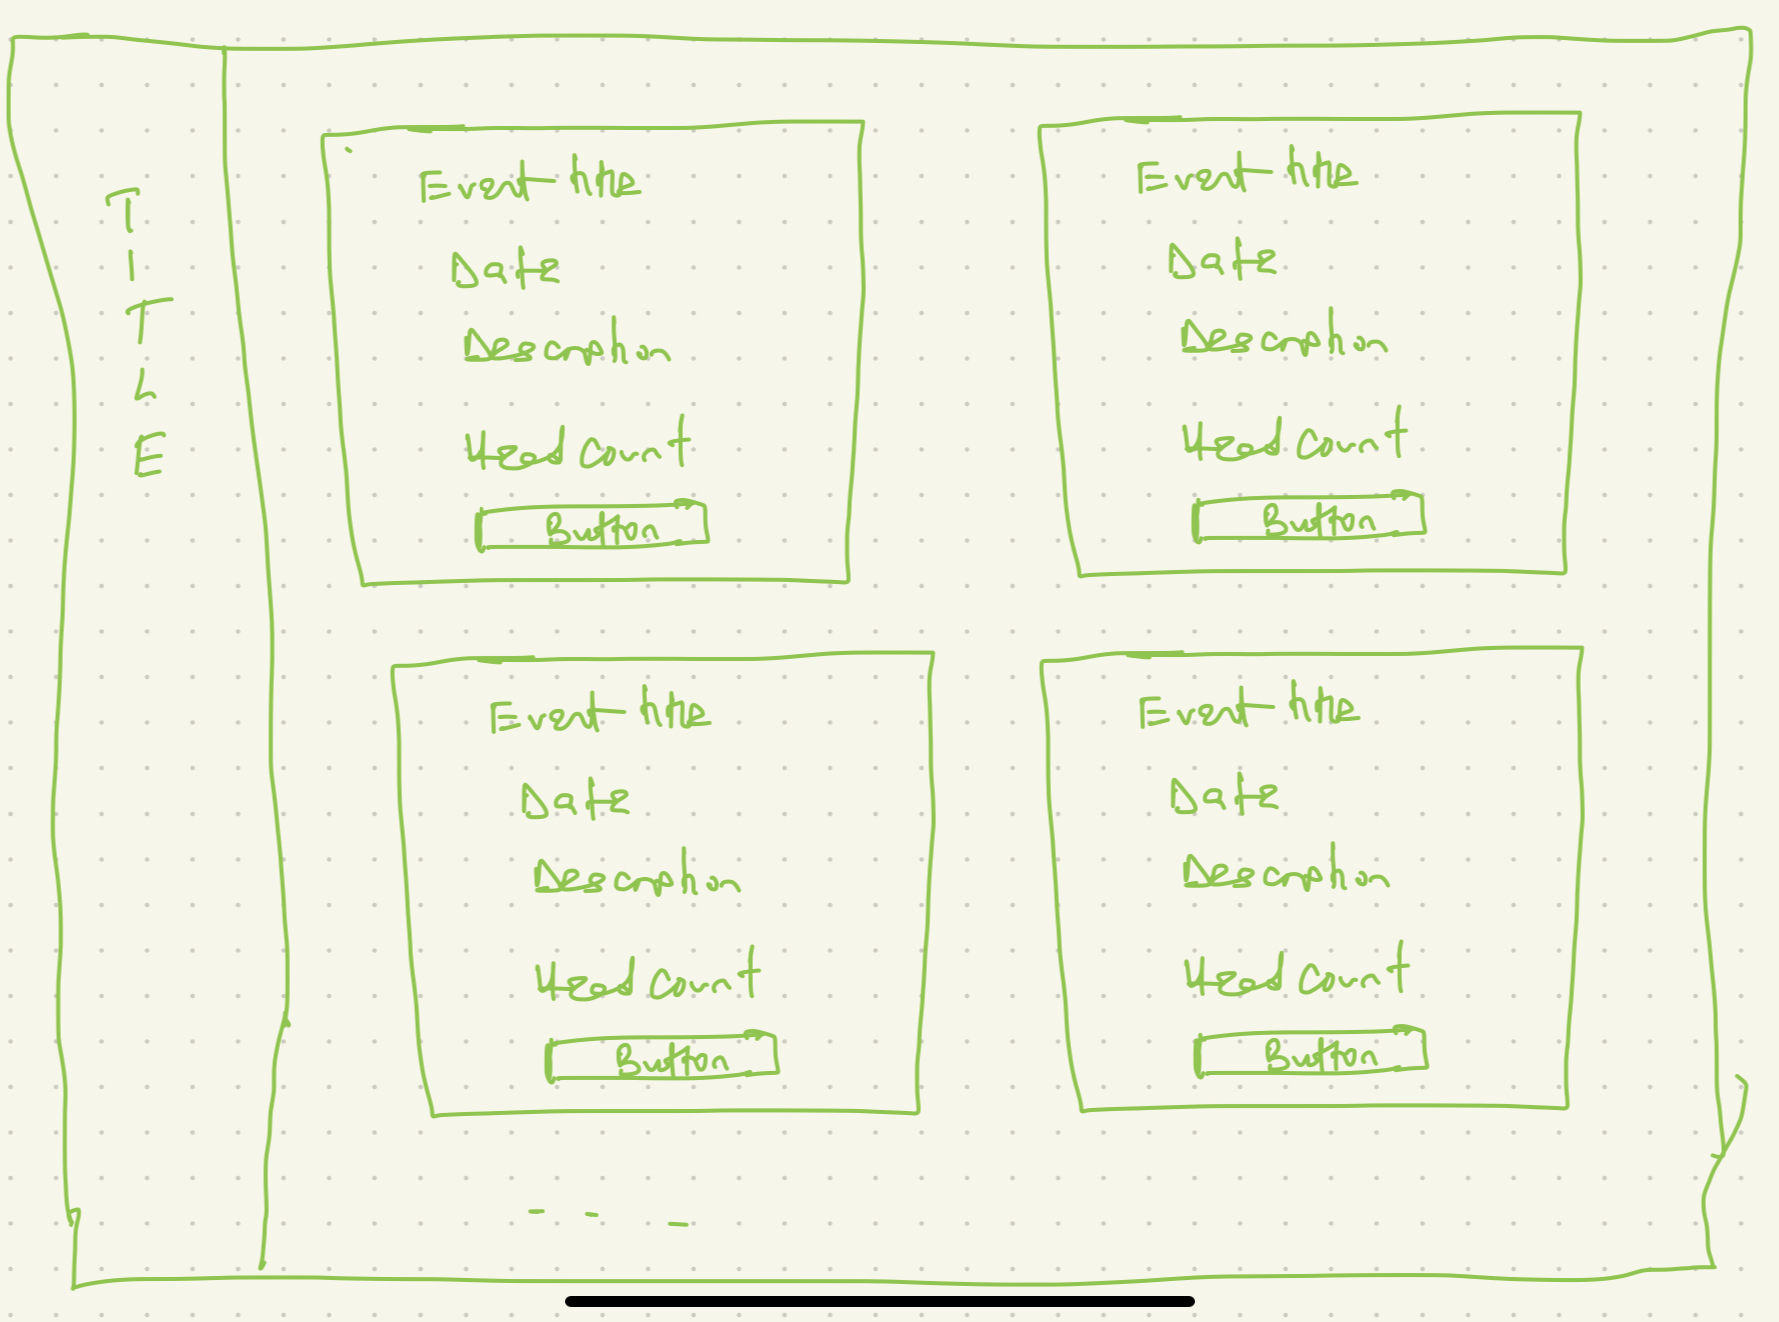 TITLE
Event title
Date
Description
Head Count
Button
Event title
Date
Description
Head Count
Button
Event title
Date
Description
Head Count
Button
Event title
Date
Description
Head Count
Button
- - -